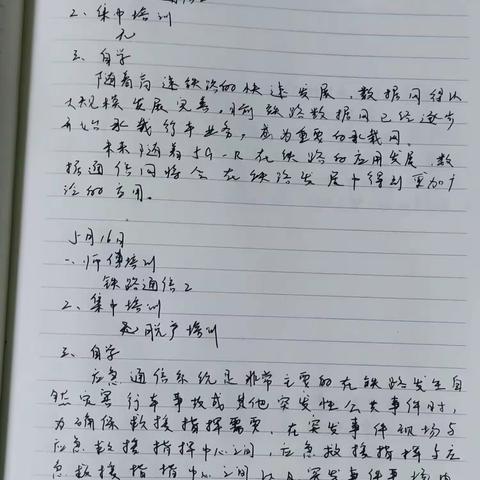 2、集中培训
无
三、自学
随着高速铁路的快速发展,数据网得以
大规模发展完善,目前铁路数据网已经逐步
开始承载行车业务,成为重要的承载网。
未来随着5G-R在铁路的应用发展,数
据通信网将会在铁路发展中得到更加广
泛的应用。
5月16日
一、师傅培训
铁路通信2
2、集中培训
脱产培训
三、自学
应急通信系统是非常主要的在铁路发生自
然灾害行车事故或其他突发性公共事件时,
为确保救援指挥需要,在突发事件现场与
应急救援指挥中心之间,应急救援指挥与应
急救援指挥中心之间以及突发事件现场内